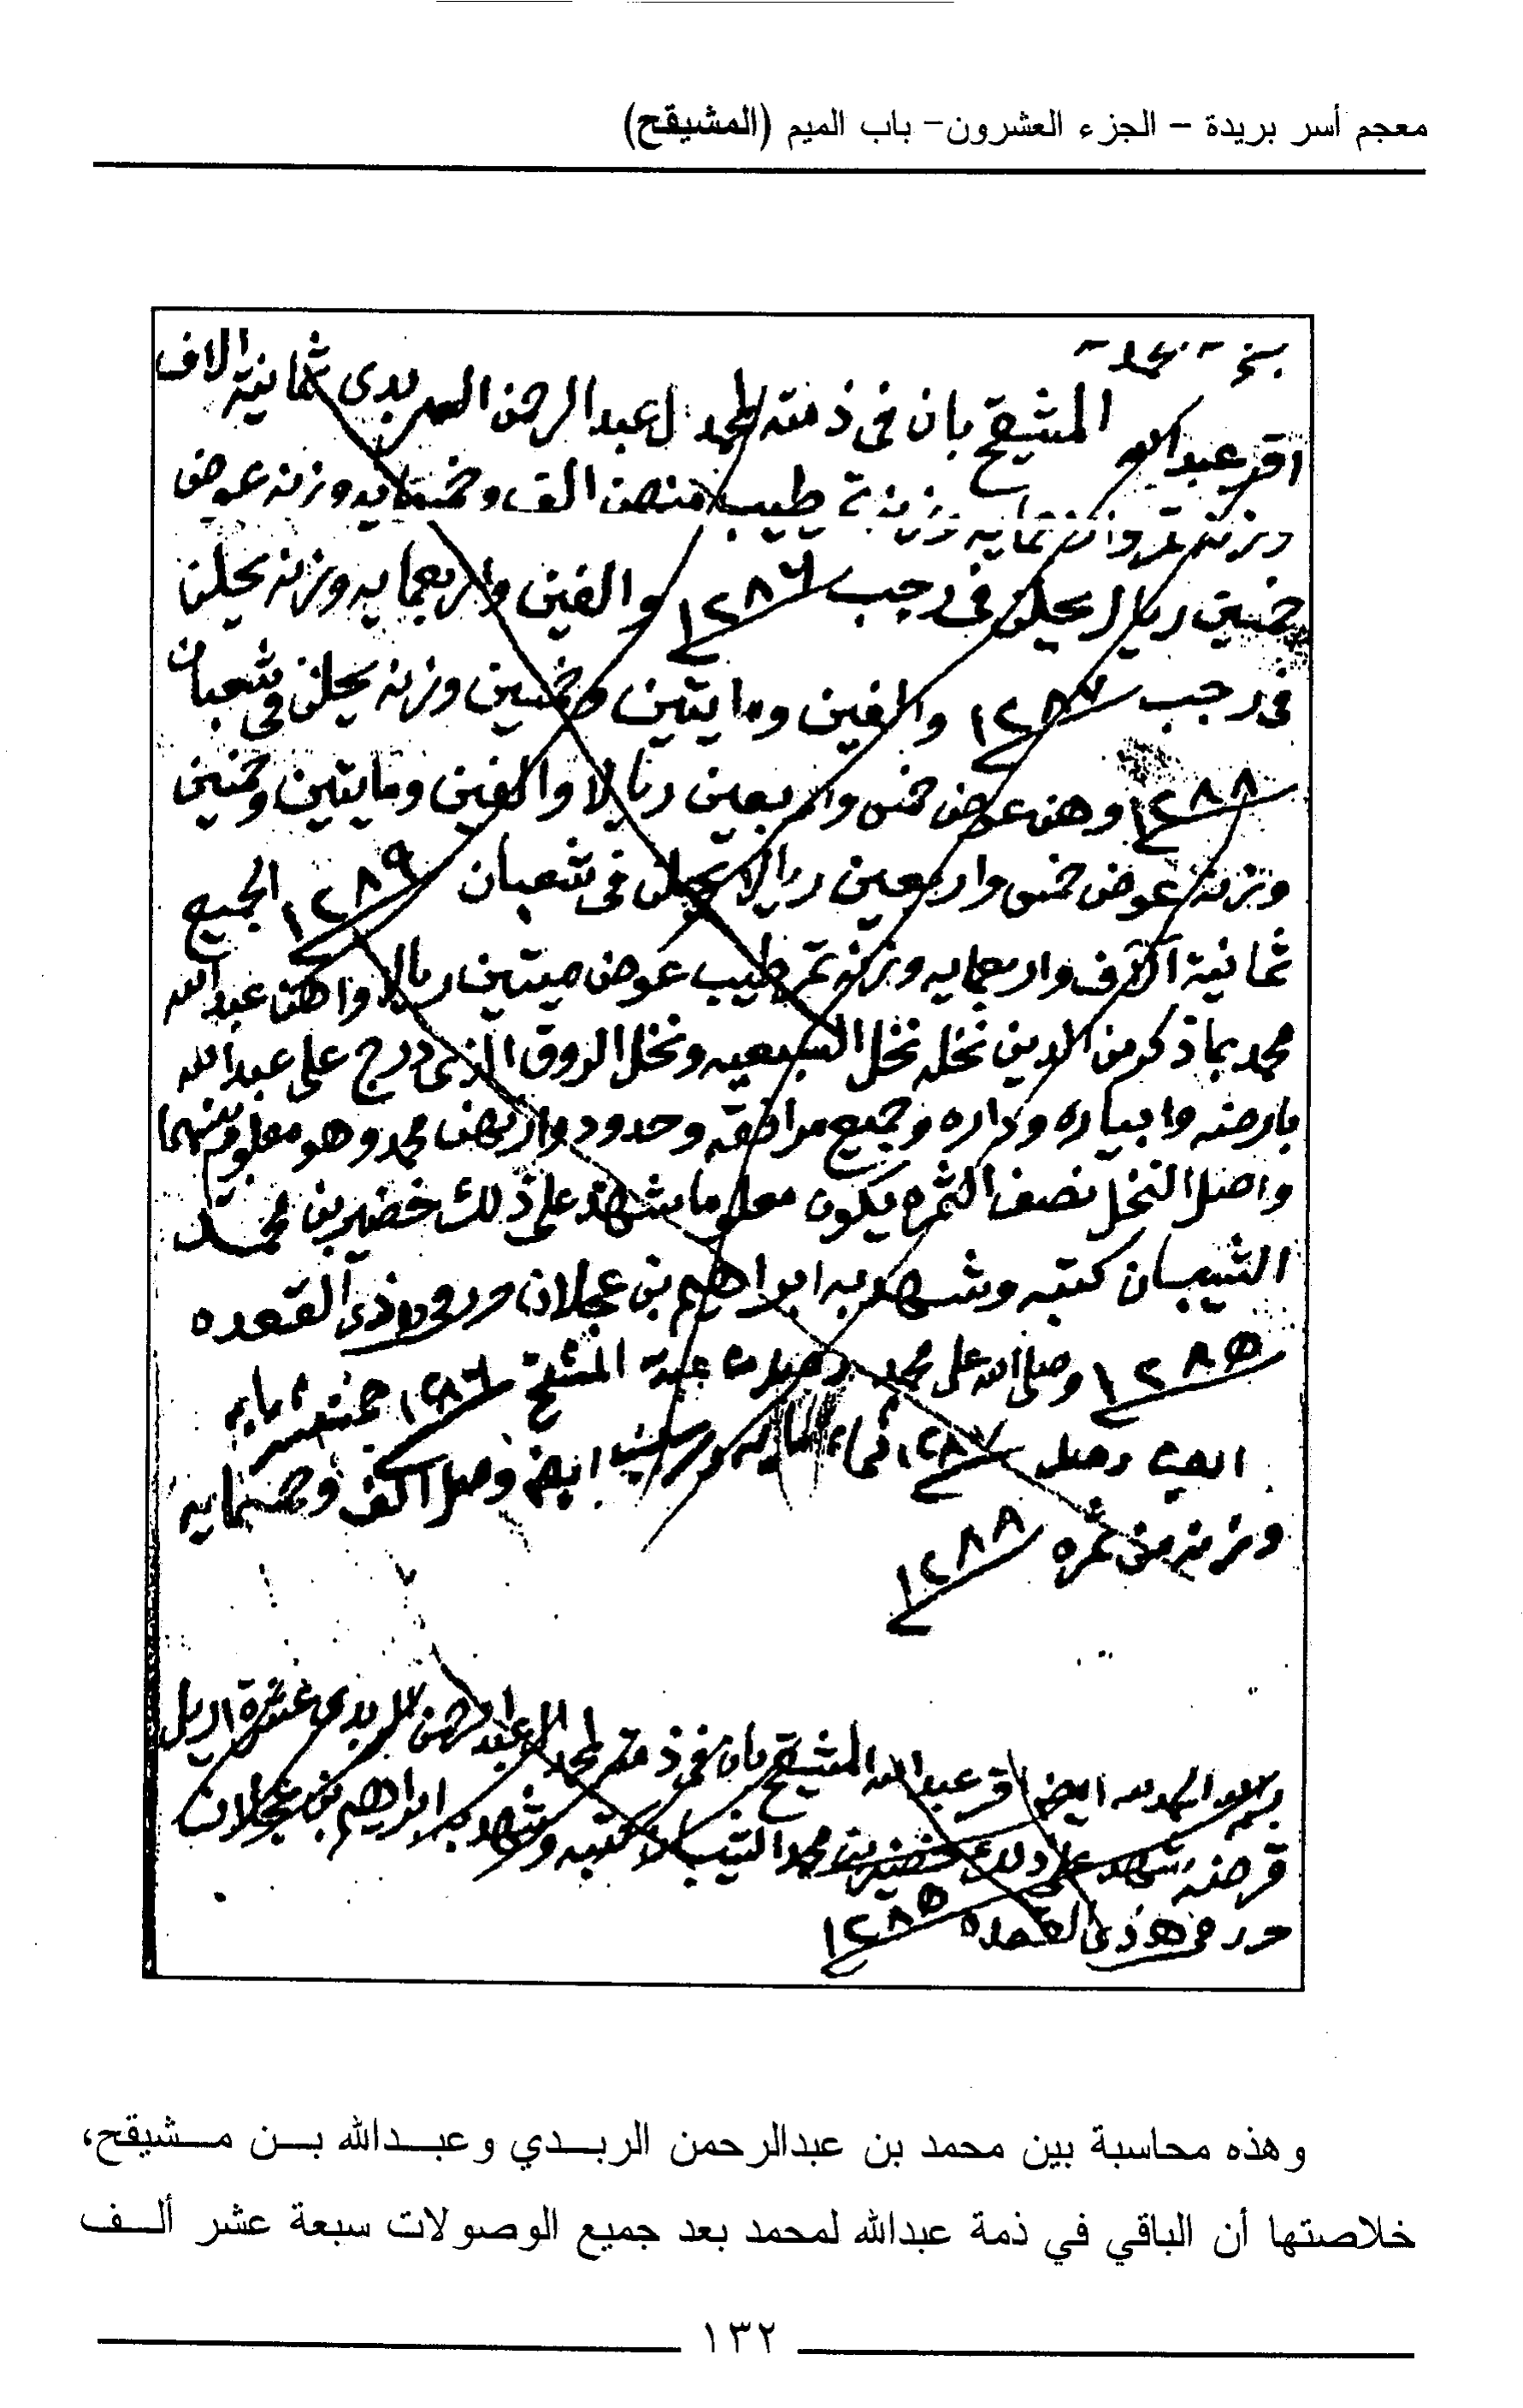 معجم أسر بريدة – الجزء العشرون– باب الميم (المشيقح)
اقر عبدالله المشيقح بان في ذمته لمحمد ال عبدالرحمن الربدي ثمانية الاف
وزنة تمر واربعمايه وزنة تمر طيب منهن الف وخمسمايه وزنه عوض
خمسين ريال يحلن في رجب ١٢٨٦ والفين واربعمايه وزنه يحلن
في رجب ١٢٨٧ والفين ومايتين وخمسين وزنه يحلن في شعبان
١٢٨٨ وهن عوض خمس واربعين ريالا والفين ومايتين وخمسين
وزنه عوض خمس واربعين ريالا يحلن في شعبان ١٢٨٩ الجميع
ثمانية الاف واربعمايه وزنه تمر طيب عوض ميتين ريال وارهن عبدالله
محمد بما ذكر من الدين نخله نخل السبيعيه ونخل الروق الذي درج على عبدالله
بارضه وابياره وداره وجميع مرافقه وحدوده وارتهن محمد وهو معلوم بينهما
واصل النخل نصف الثمره يكون معلوما شهد على ذلك خضير بن محمد
الشيبان كتبه وشهد به ابراهيم بن عجلان حرر في ذي القعده
١٢٨٥ وصلى الله على محمد المشيقح ١٢٨٦
وصل ١٢٨٧ ايضا وصل الف وخمسمايه
وزنه من ثمره ١٢٨٨
ايضا اقر عبدالله المشيقح بان في ذمته لمحمد ال عبدالرحمن الربدي عشرة اريل
قرضه شهد على ذلك خضير بن محمد الشيبان كتبه وشهد به ابراهيم بن عجلان
حرر في ٥ ذي القعده ١٢٨٥
وهذه محاسبة بين محمد بن عبدالرحمن الربدي وعبدالله بن مشيقح،
خلاصتها أن الباقي في ذمة عبدالله لمحمد بعد جميع الوصولات سبعة عشر ألف
١٣٢